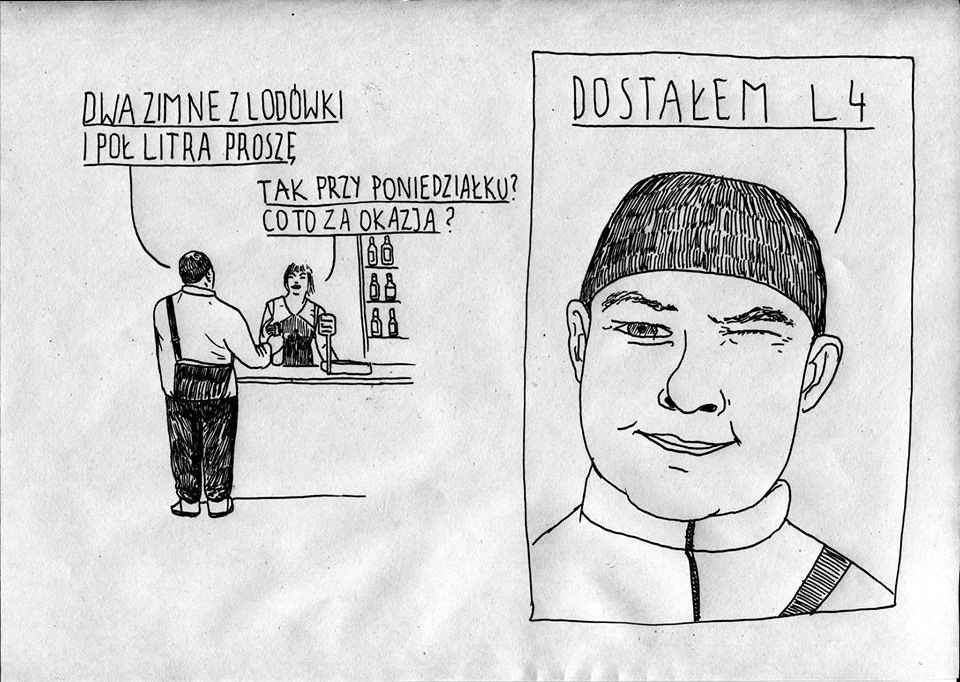 DWA ZIMNE Z LODÓWKI
I PÓŁ LITRA PROSZĘ
TAK PRZY PONIEDZIAŁKU?
CO TO ZA OKAZJA?
DOSTAŁEM L4